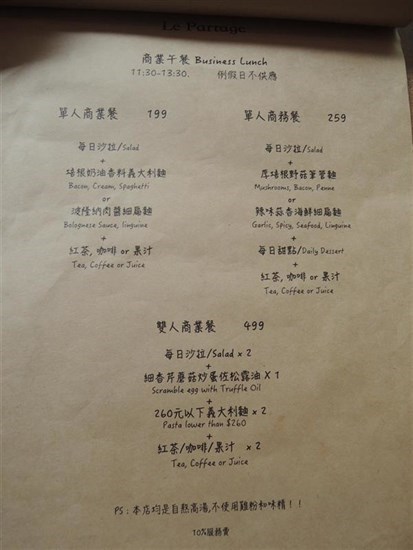 Le Partage
商業午餐 Business Lunch
11:30-13:30. 例假日不供應
單人商業餐 199
每日沙拉/Salad
+
培根奶油香料義大利麵
Bacon, Cream, Spaghetti
or
波隆納肉醬細扁麵
Bolognese Sauce, linguine
+
紅茶, 咖啡 or 果汁
Tea, Coffee or Juice
單人商務餐 259
每日沙拉/Salad
+
厚培根野菇筆管麵
Mushrooms, Bacon, Penne
or
辣味蒜香海鮮細扁麵
Garlic, Spicy, Seafood, Linguine
+
每日甜點/Daily Dessert
+
紅茶, 咖啡 or 果汁
Tea, Coffee or Juice
雙人商業餐 499
每日沙拉/Salad x 2
+
細香芹蘑菇炒蛋佐松露油 X 1
Scramble egg with Truffle Oil
+
260元以下義大利麵 x 2
Pasta lower than $260
+
紅茶/咖啡/果汁 x 2
Tea, Coffee or Juice
PS : 本店均是自熬高湯,不使用雞粉和味精！！
10%服務費